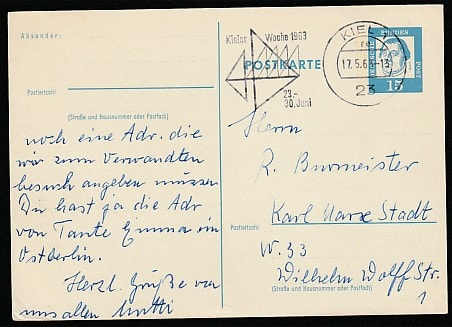 Absender:
Postleitzahl
(Straße und Hausnummer oder Postfach)
noch eine Adr. die
wir zum Verwandten
besuch angeben müssen
Du hast ja die Adr
von Tante Emma in
Ostberlin.
Herzl. Grüße von
uns allen Mutti
Kieler Woche 1963
23.-
30. Juni
POSTKARTE
KIEL 1
17.5.63-13
23
DEUTSCHE BUNDESPOST
15
Herrn
R. Burmeister
Karl Marx Stadt
Postleitzahl
W. 33
Wilhelm Wolff Str.
(Straße und Hausnummer oder Postfach)
1